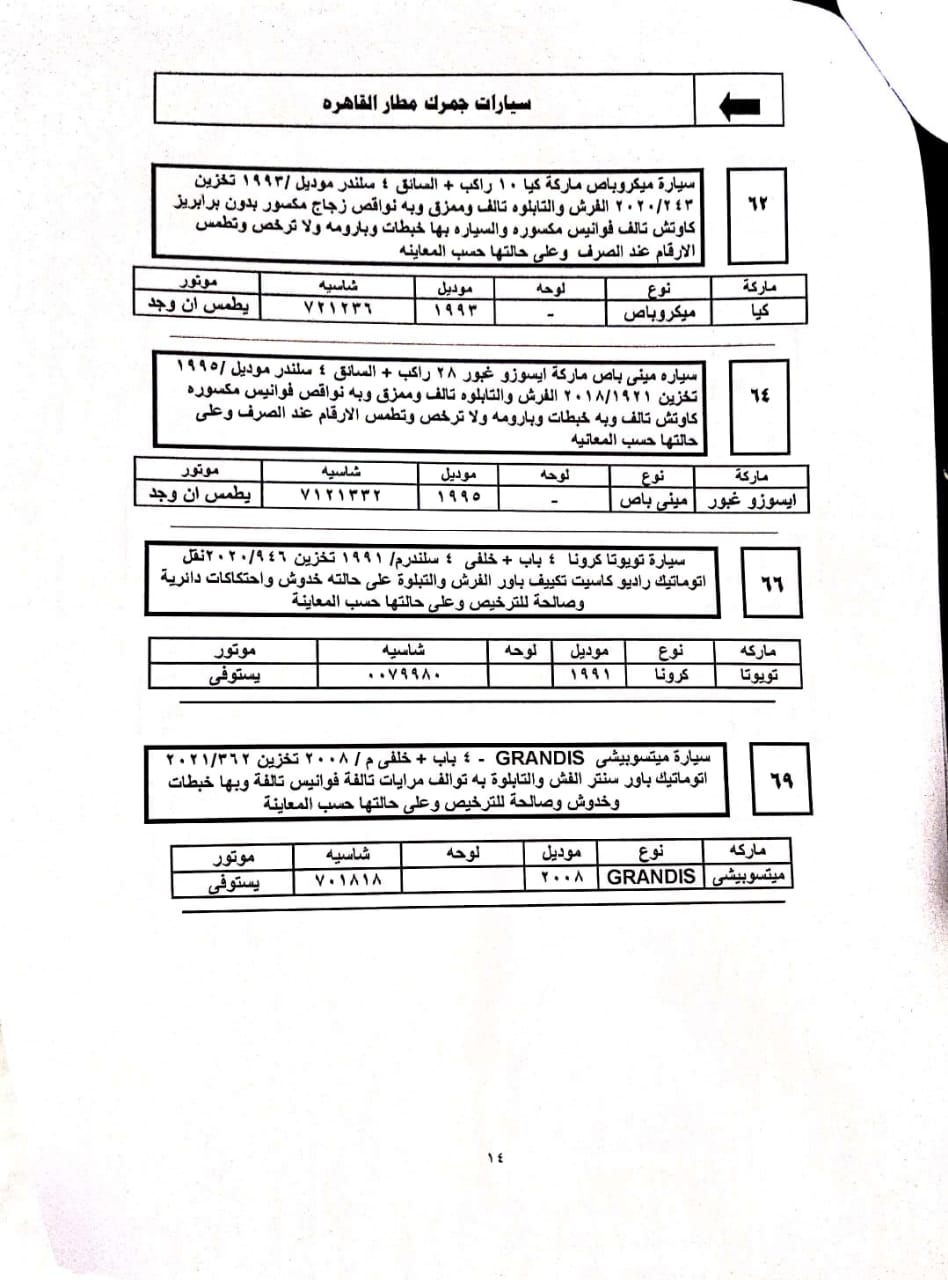 سيارات جمرك مطار القاهره
٦٢
سيارة ميكروباص ماركة كيا ١٠ راكب + السائق ٤ سلندر موديل /١٩٩٣ تخزين
٢٠٢٠/٢٤٣ الفرش والتابلوه تالف وممزق وبه نواقص زجاج مكسور بدون برابريز
كاوتش تالف فوانيس مكسوره والسياره بها خبطات وبارومه ولا ترخص وتطمس
الارقام عند الصرف وعلى حالتها حسب المعاينه
ماركة نوع موديل لوحه شاسيه موتور
كيا ميكروباص ١٩٩٣ - ٧٢١٢٣٦ يطمس ان وجد
٦٤
سياره مينى باص ماركة ايسوزو غبور ٢٨ راكب + السائق ٤ سلندر موديل /١٩٩٥
تخزين ٢٠١٨/١٩٢١ الفرش والتابلوه تالف وممزق وبه نواقص فوانيس مكسوره
كاوتش تالف وبه خبطات وبارومه ولا ترخص وتطمس الارقام عند الصرف وعلى
حالتها حسب المعانيه
ماركة نوع لوحه موديل شاسيه موتور
ايسوزو غبور مينى باص - ١٩٩٥ ٧١٢١٣٣٢ يطمس ان وجد
٦٦
سيارة تويوتا كرونا ٤ باب + خلفى ٤ سلندرم/ ١٩٩١ تخزين ٢٠٢٠/٩٤٦نقل
اتوماتيك راديو كاسيت تكييف باور الفرش والتبلوة على حالته خدوش واحتكاكات دائرية
وصالحة للترخيص وعلى حالتها حسب المعاينة
ماركه نوع موديل لوحه شاسيه موتور
تويوتا كرونا ١٩٩١ ٠٠٧٩٩٨٠ يستوفى
٦٩
سيارة ميتسوبيشى GRANDIS - ٤ باب + خلفى م / ٢٠٠٨ تخزين ٢٠٢١/٣٦٢
اتوماتيك باور سنتر الفش والتابلوة به توالف مرايات تالفة فوانيس تالفة وبها خبطات
وخدوش وصالحة للترخيص وعلى حالتها حسب المعاينة
ماركه نوع موديل لوحه شاسيه موتور
ميتسوبيشى GRANDIS ٢٠٠٨ ٧٠١٨١٨ يستوفى
١٤